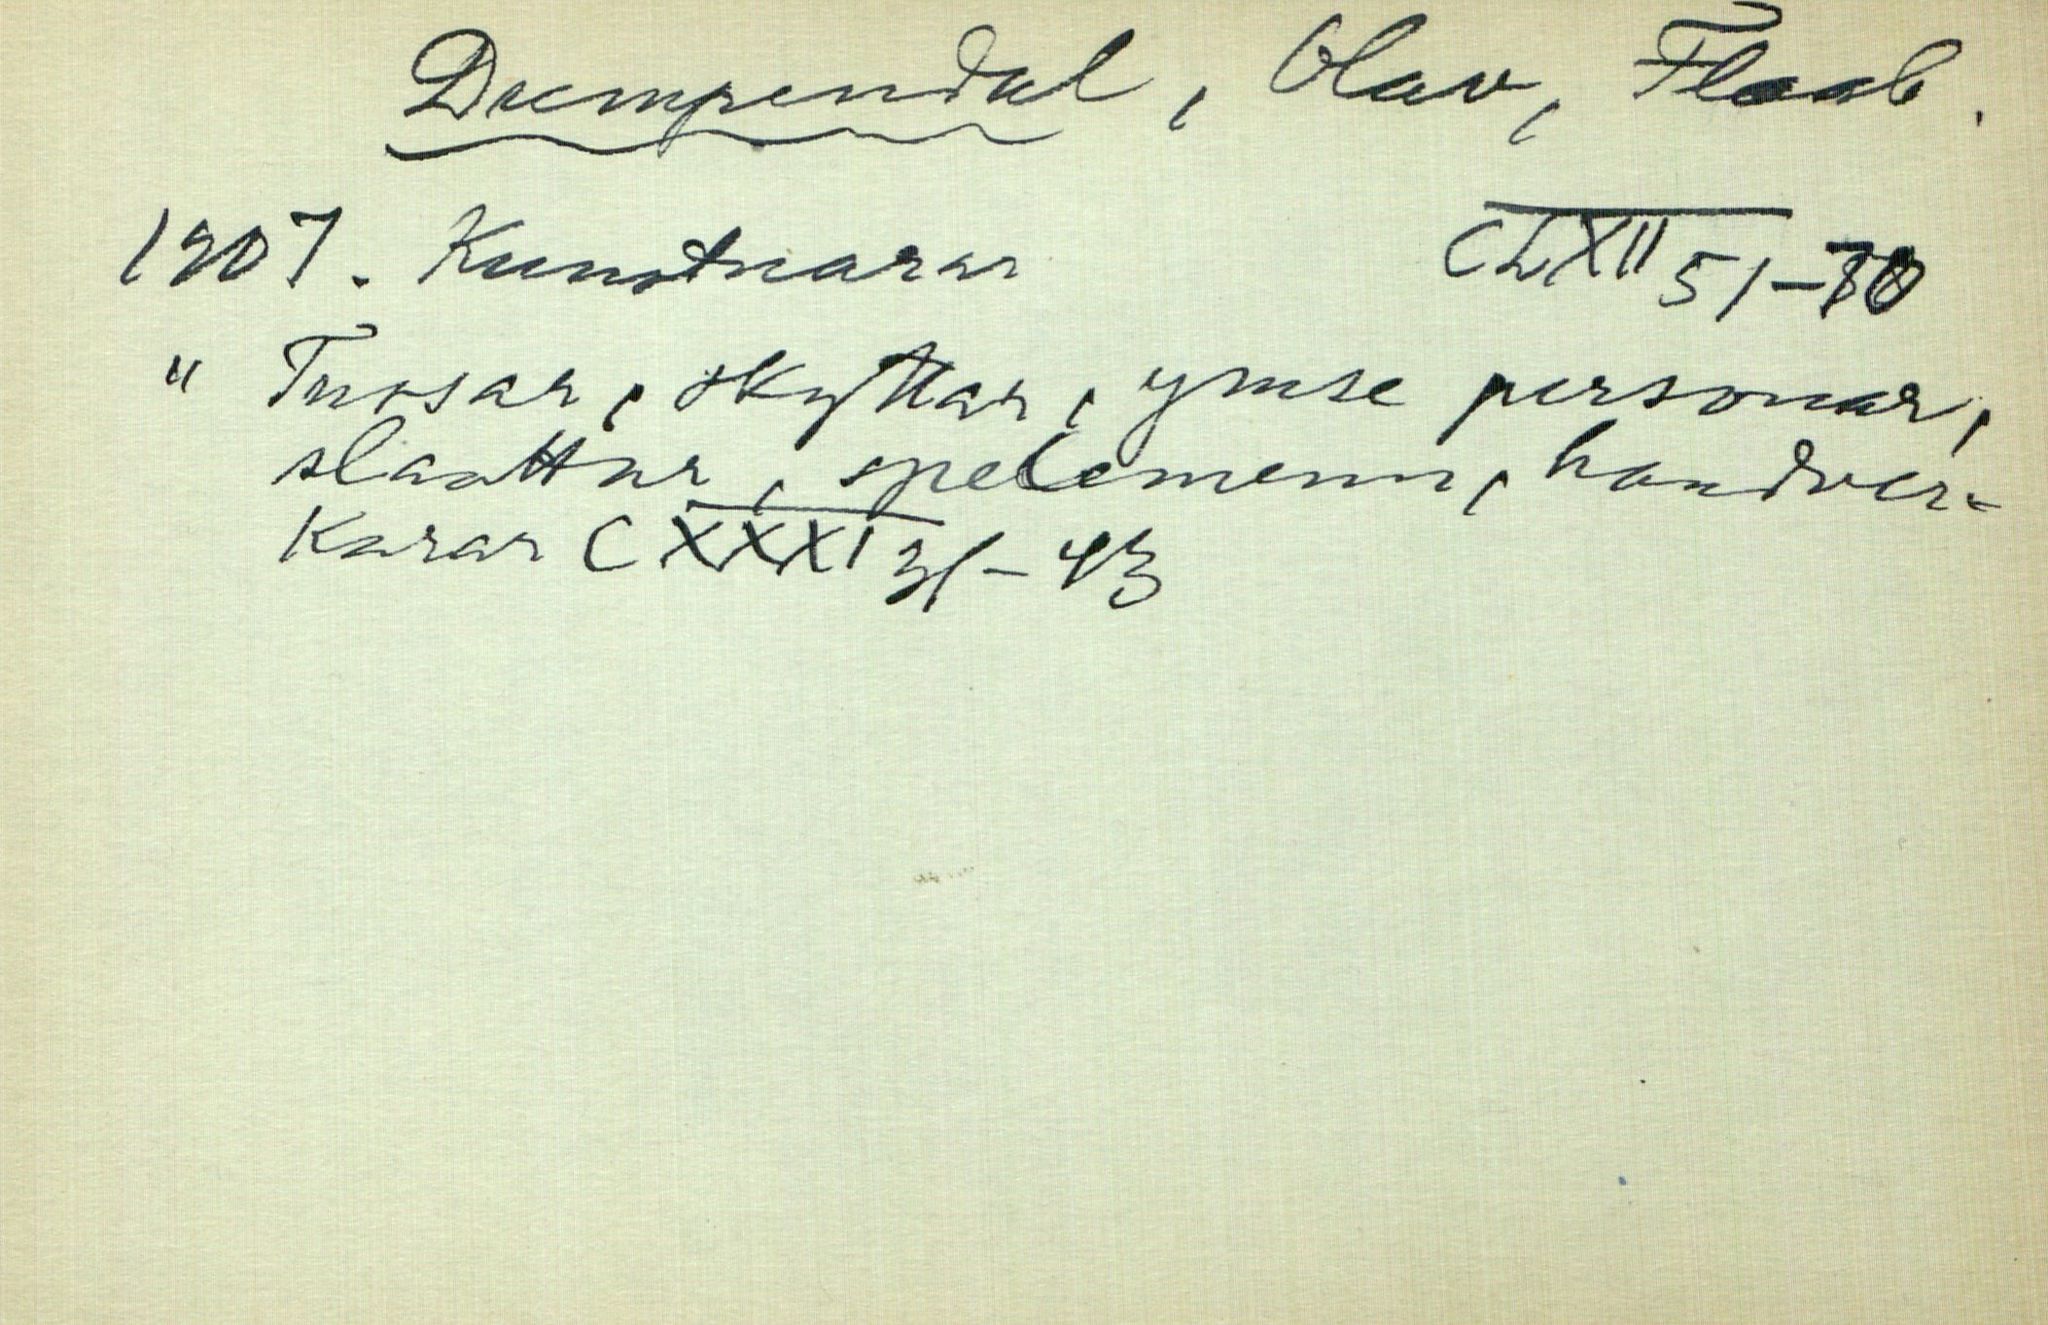 Dumpendal, Olav, Flaab.
1907. Kunstnarar CLXII 51-70
" Tussar, skyttar, ymse personar,
slaattar, spelemenn, handver-
karar CXXXI 31-43